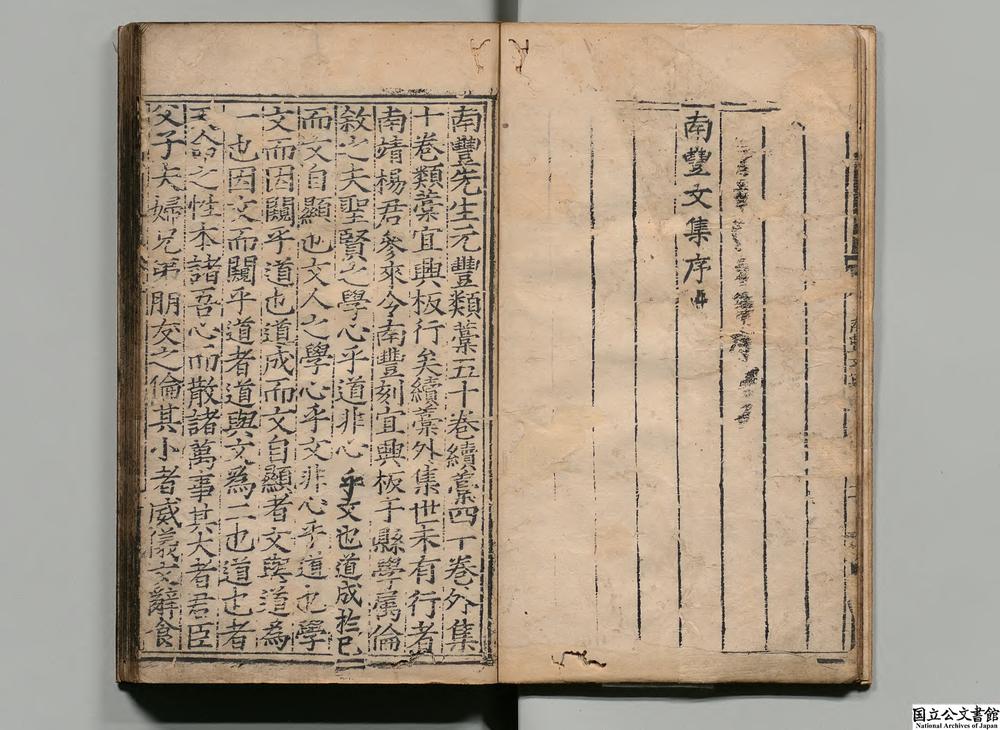 南豐文集序
南豐先生元豐類藁五十卷續藁四十卷外集
十卷類藁宜興板行矣續藁外集世未有行者
南靖楊君參來令南豐刻宜興板于縣學屬倫
敘之夫聖賢之學心乎道非心乎文也道成於已
而文自顯也文人之學心乎文非心乎道也學
文而因闚乎道也道成而文自顯者文與道為
一也因文而闚乎道者道與文為二也道也者
天命之性本諸吾心而散諸萬事其大者君臣
父子夫婦兄弟朋友之倫其小者威儀文辭食
国立公文書館
National Archives of Japan